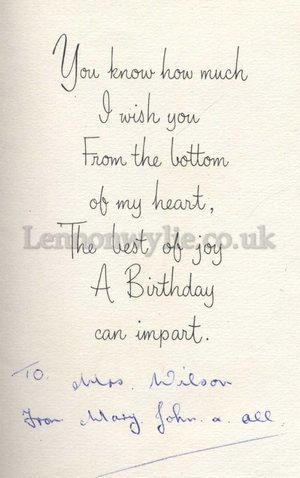 You know how much
I wish you
From the bottom
of my heart,
Lennonwylie.co.uk
The best of joy
A Birthday
can impart.
TO.
Mrs. Wilson
From Mary, John. a. all.